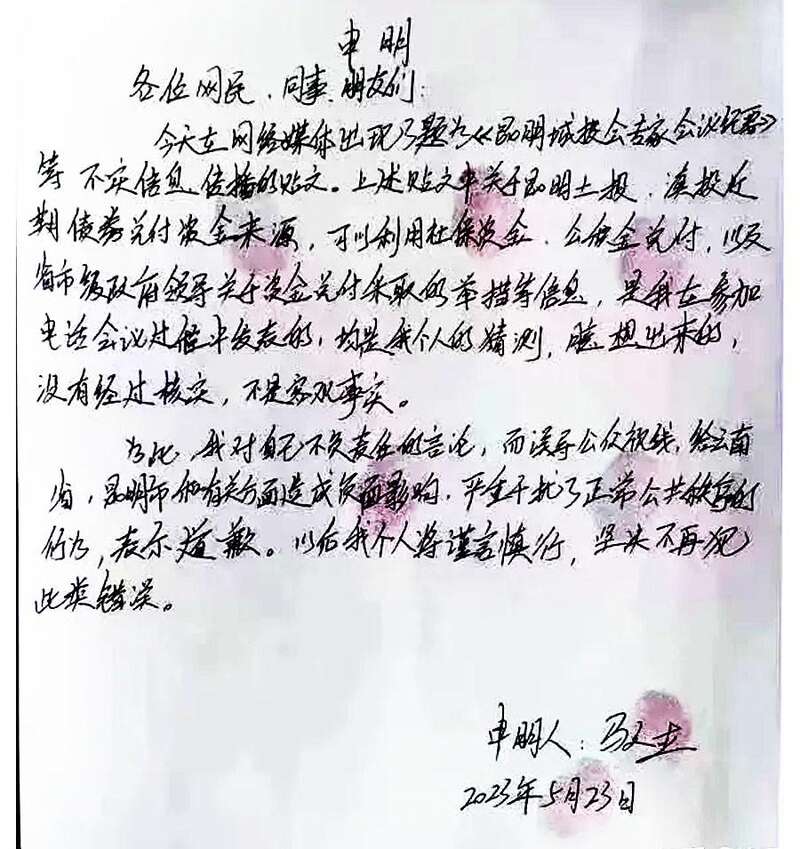 申明
各位网民、同事、朋友们:
今天在网络媒体出现了题为《昆明城投会专家会议纪要》
等不实信息传播的贴文。上述贴文中关于昆明土投、滇投近
期债券兑付资金来源，可以利用社保资金、公积金兑付，以及
省市级政府领导关于资金兑付采取的举措等信息，是我在参加
电话会议过程中发表的，均是我个人的猜测，臆想出来的，
没有经过核实，不是客观事实。
为此，我对自己不负责任的言论，而误导公众视线，给云南
省，昆明市和有关方面造成负面影响，严重干扰了正常公共秩序的
行为，表示道歉。以后我个人将谨言慎行，坚决不再犯
此类错误。
申明人：
2023年5月23日